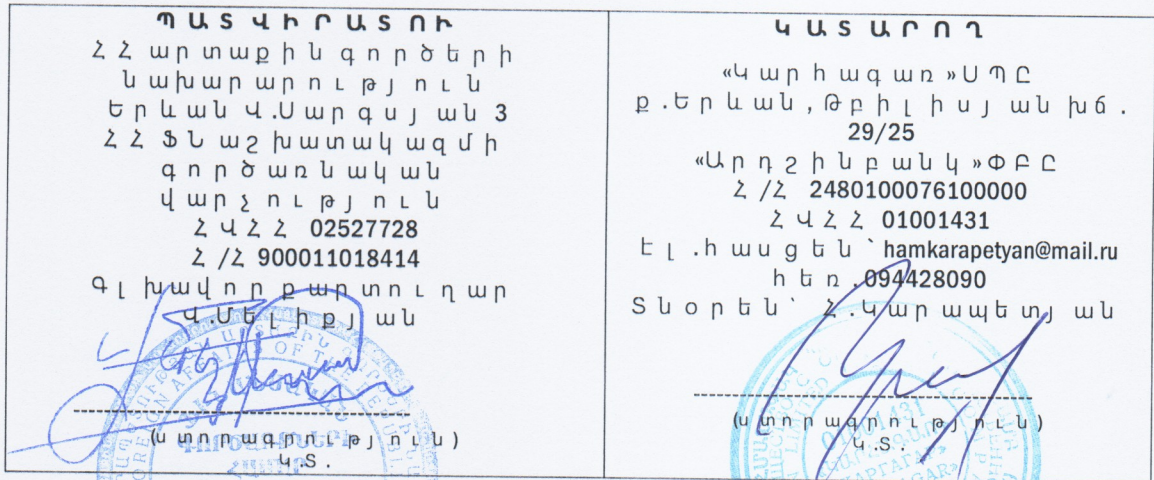 ՊԱՏՎԻՐԱՏՈՒ
ՀՀ արտաքին գործերի
նախարարություն
Երևան Վ.Սարգսյան 3
ՀՀ ՖՆ աշխատակազմի
գործառնական
վարչություն
ՀՎՀՀ 02527728
Հ/Հ 900011018414
Գլխավոր քարտուղար
Վ.Մելիքյան
(ստորագրություն)
Կ.Տ.
ԿԱՏԱՐՈՂ
«Կարհագառ»ՍՊԸ
ք.Երևան,Թբիլիսյան խճ.
29/25
«Արդշինբանկ»ՓԲԸ
Հ/Հ 2480100076100000
ՀՎՀՀ 01001431
Էլ.հասցեն՝hamkarapetyan@mail.ru
հեռ.094428090
Տնօրեն՝ Հ.Կարապետյան
(ստորագրություն)
Կ.Տ.